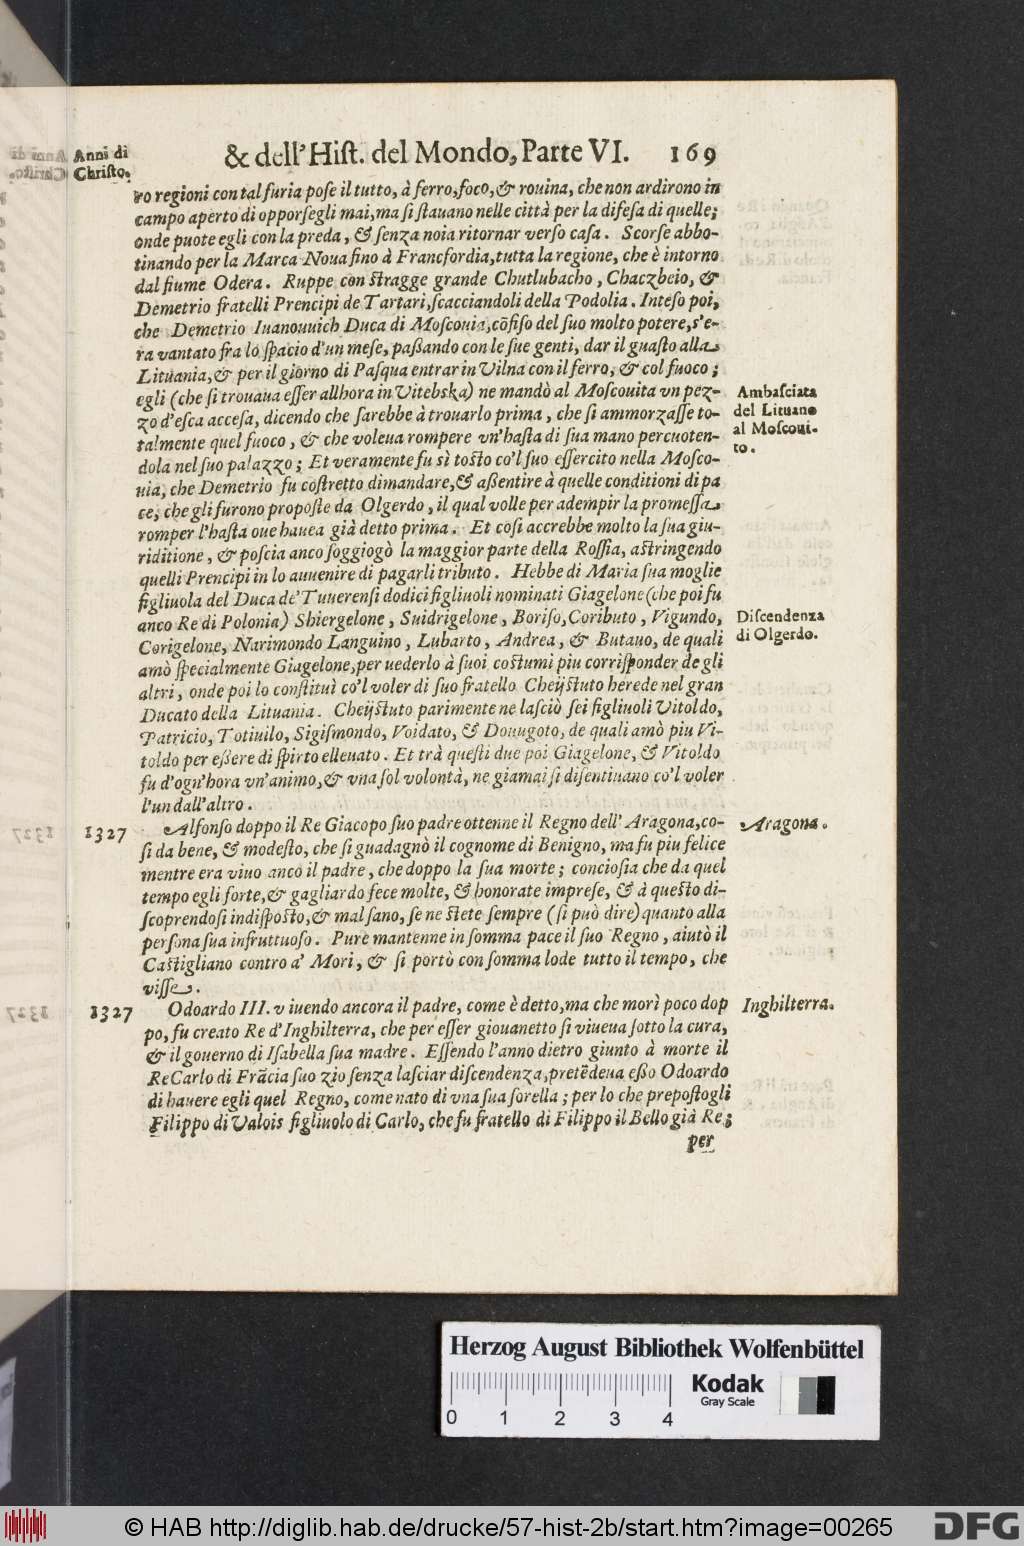 Anni di
Christo.
& dell'Hiſt. del Mondo, Parte VI. 169
ro regioni con tal furia poſe il tutto, à ferro, foco, & rouina, che non ardirono in
campo aperto di opporſegli mai, ma ſi ſtauano nelle città per la difeſa di quelle;
onde puote egli con la preda, & ſenza noia ritornar verſo caſa. Scorſe abbo-
tinando per la Marca Noua fino à Francfordia, tutta la regione, che è intorno
dal fiume Odera. Ruppe con ſtragge grande Chutlubacho, Chaczbeio, &
Demetrio fratelli Prencipi de Tartari, ſcacciandoli della Podolia. Inteſo poi,
che Demetrio Iuanouuich Duca di Moſcouia, cõfiſo del ſuo molto potere, s'e-
ra vantato fra lo ſpacio d'un meſe, paßando con le ſue genti, dar il guaſto alla
Lituania, & per il giorno di Paſqua entrar in Vilna con il ferro, & col fuoco;
egli (che ſi trouaua eſſer allhora in Vitebska) ne mandò al Moſcouita vn pez-
zo d'eſca acceſa, dicendo che ſarebbe à trouarlo prima, che ſi ammorzaſſe to-
talmente quel fuoco, & che voleua rompere vn'haſta di ſua mano percuoten-
dola nel ſuo palazzo; Et veramente fu sì toſto co'l ſuo eſſercito nella Moſco-
uia, che Demetrio fu coſtretto dimandare, & aßentire à quelle conditioni di pa
ce, che gli furono propoſte da Olgerdo, il qual volle per adempir la promeſſa
romper l'haſta oue hauea già detto prima. Et coſi accrebbe molto la ſua giu-
riditione, & poſcia anco ſoggiogò la maggior parte della Roſſia, aſtringendo
quelli Prencipi in lo auuenire di pagarli tributo. Hebbe di Maria ſua moglie
figliuola del Duca de' Tuuerenſi dodici figliuoli nominati Giagelone (che poi fu
anco Re di Polonia) Skiergelone, Suidrigelone, Boriſo, Coributo, Vigundo,
Corigelone, Narimondo Languino, Lubarto, Andrea, & Butauo, de quali
amò ſpecialmente Giagelone, per uederlo à ſuoi coſtumi piu corriſponder de gli
altri, onde poi lo conſtituì co'l voler di ſuo fratello Cheijſtuto herede nel gran
Ducato della Lituania. Cheijſtuto parimente ne laſciò ſei figliuoli Vitoldo,
Patricio, Totiuilo, Sigiſmondo, Voidato, & Douugoto, de quali amò piu Vi-
toldo per eßere di ſpirto elleuato. Et trà queſti due poi Giagelone, & Vitoldo
fu d'ogn'hora vn'animo, & vna ſol volontà, ne giamai ſi diſentiuano co'l voler
l'un dall'altro.
Ambaſciata
del Lituano
al Moſcoui-
to.
Diſcendenza
di Olgerdo.
1327
Alfonſo doppo il Re Giacopo ſuo padre ottenne il Regno dell'Aragona, co-
ſi da bene, & modeſto, che ſi guadagnò il cognome di Benigno, ma fu piu felice
mentre era viuo anco il padre, che doppo la ſua morte; concioſia che da quel
tempo egli forte, & gagliardo fece molte, & honorate impreſe, & à queſto di-
ſcoprendoſi indiſpoſto, & mal ſano, ſe ne ſtete ſempre (ſi può dire) quanto alla
perſona ſua infruttuoſo. Pure mantenne in ſomma pace il ſuo Regno, aiutò il
Caſtigliano contro a' Mori, & ſi portò con ſomma lode tutto il tempo, che
viſſe.
Aragona.
1327
Odoardo III. viuendo ancora il padre, come è detto, ma che morì poco dop
po, fu creato Re d'Inghilterra, che per eſſer giouanetto ſi viueua ſotto la cura,
& il gouerno di Iſabella ſua madre. Eſſendo l'anno dietro giunto à morte il
Re Carlo di Frãcia ſuo zio ſenza laſciar diſcendenza, pretẽdeua eßo Odoardo
di hauere egli quel Regno, come nato di vna ſua ſorella; per lo che prepoſtogli
Filippo di Valois figliuolo di Carlo, che fu fratello di Filippo il Bello già Re;
per
Inghilterra.
Herzog August Bibliothek Wolfenbüttel
0 1 2 3 4
Kodak
Gray Scale
© HAB http://diglib.hab.de/drucke/57-hist-2b/start.htm?image=00265
DFG